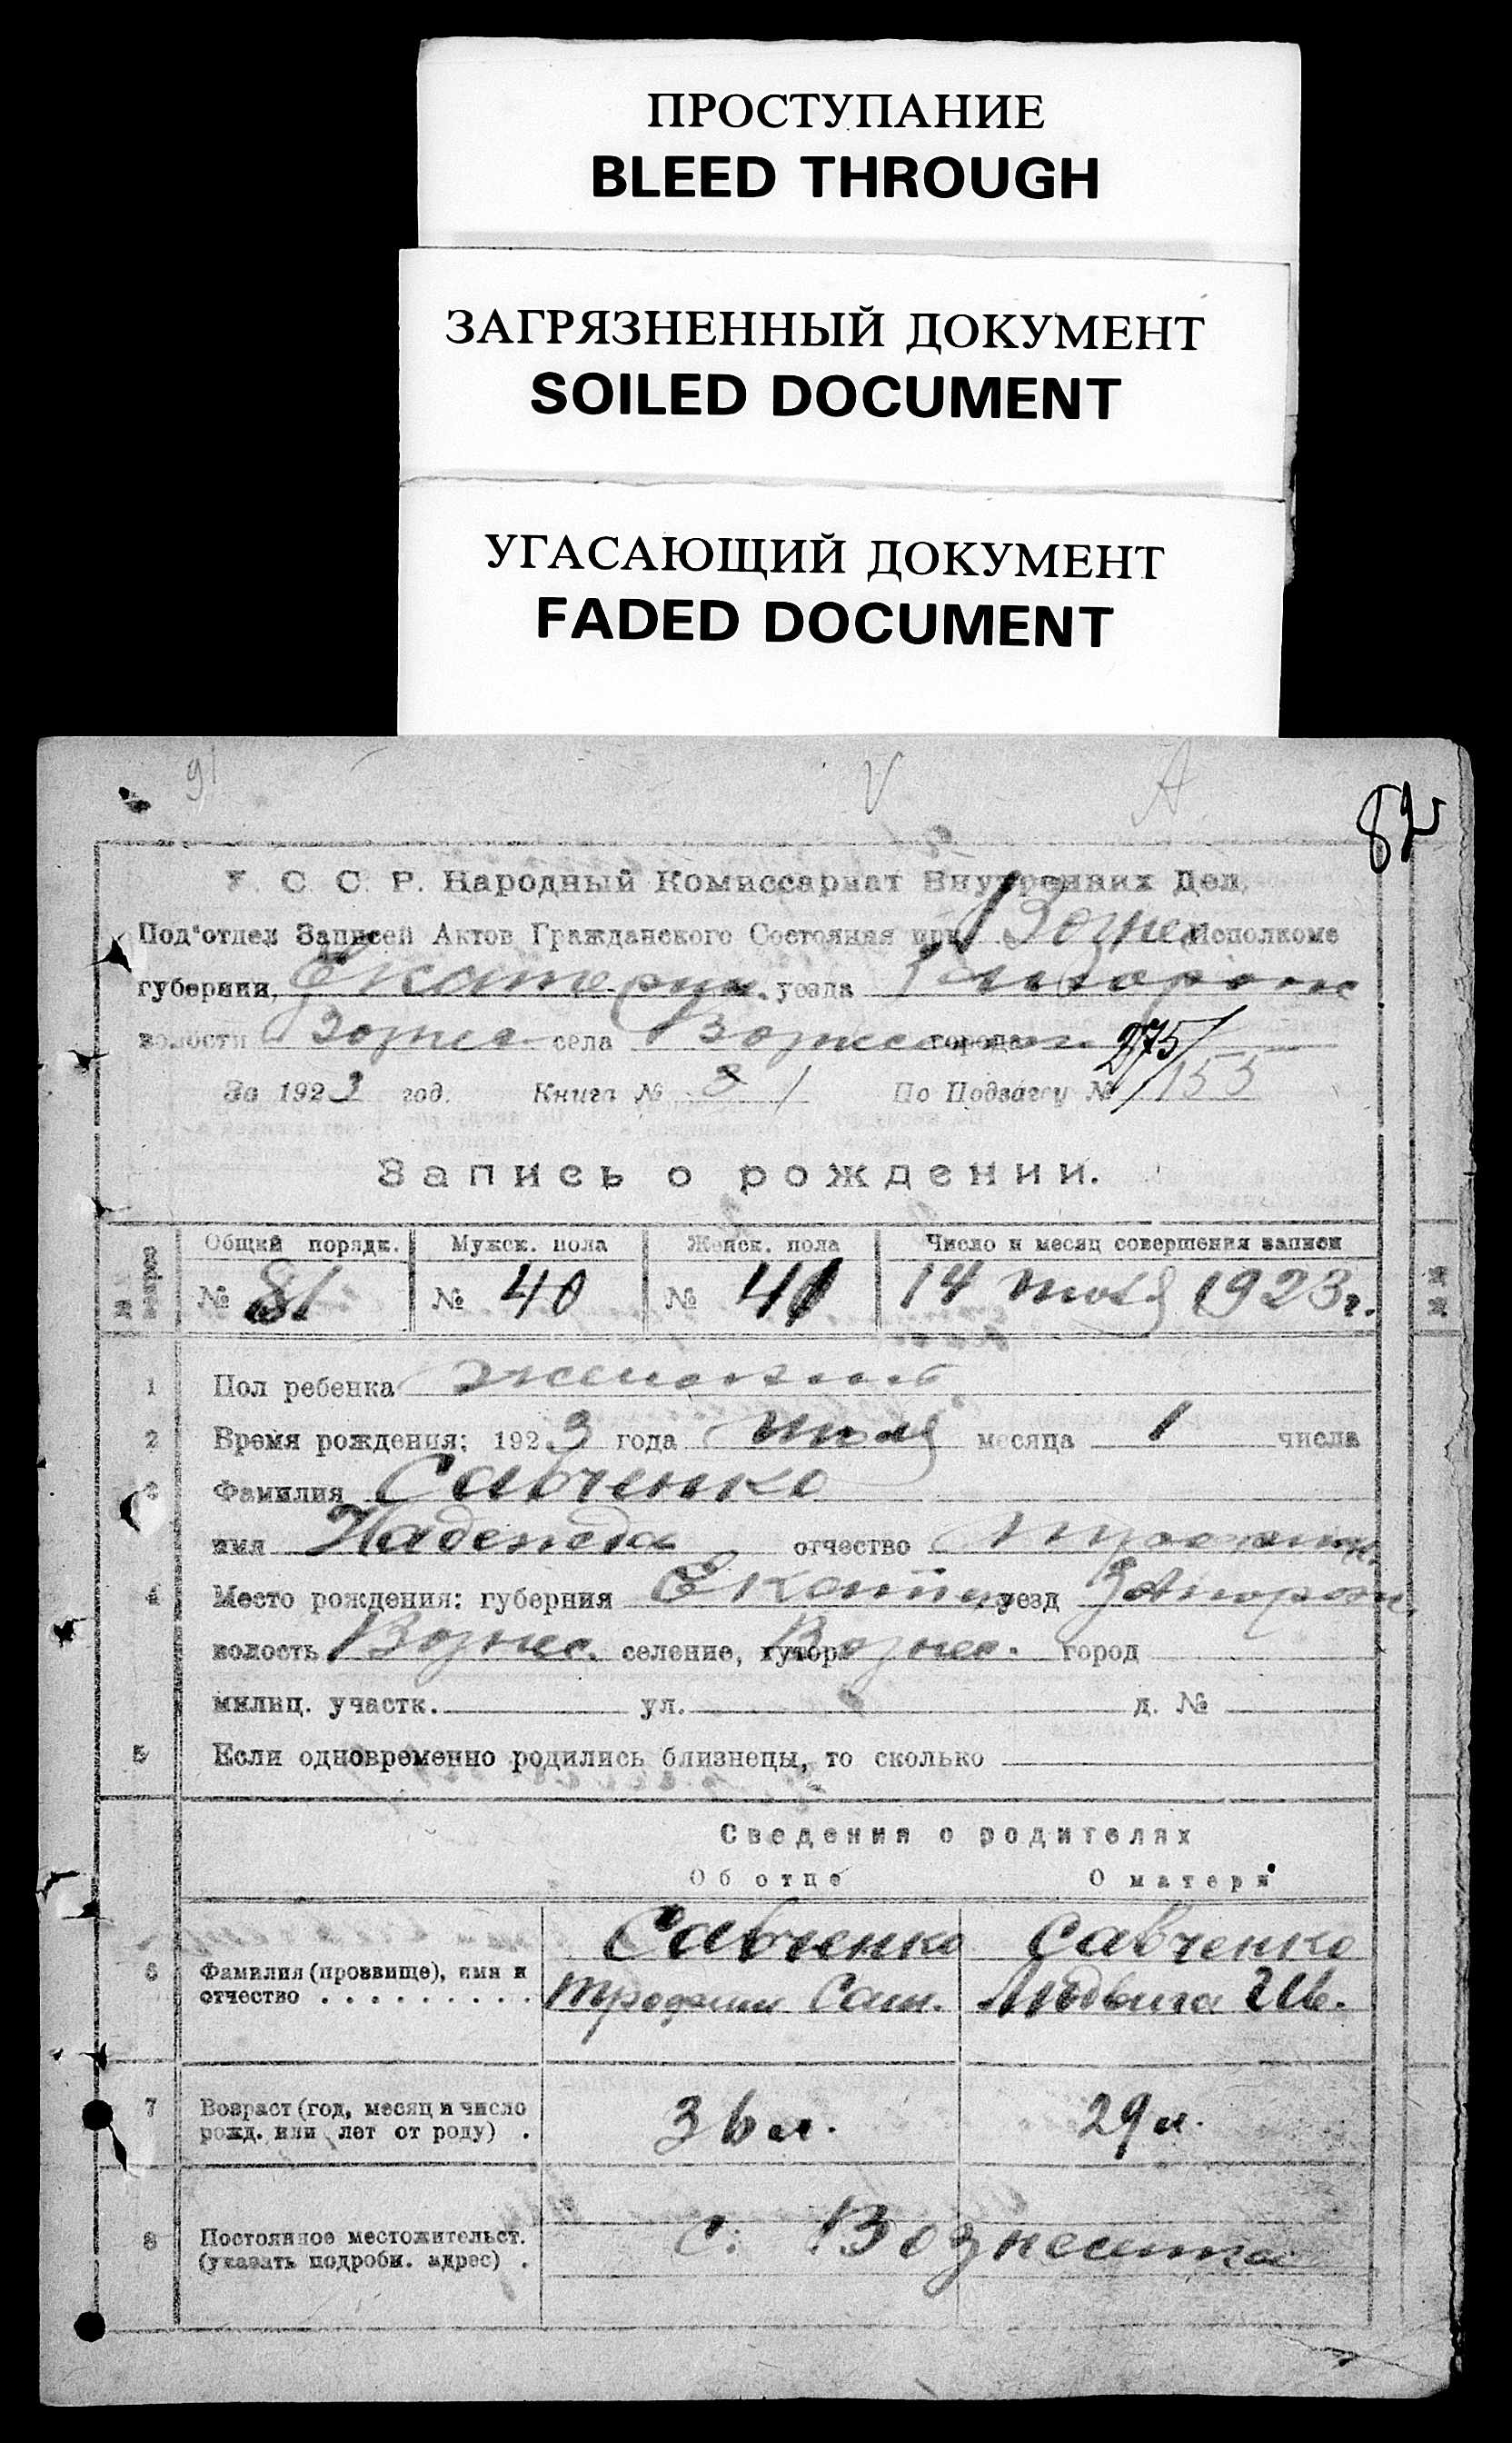 ПРОСТУПАНИЕ
BLEED THROUGH
ЗАГРЯЗНЕННЫЙ ДОКУМЕНТ
SOILED DOCUMENT
УГАСАЮЩИЙ ДОКУМЕНТ
FADED DOCUMENT
91 V А
У. С. С. Р. Народный Комиссариат Внутренних Дел,
Под'отдел Записей Актов Гражданского Состояния при Исполкоме
губернии, Екатерин. уезда
волости Вознес села города 275/
За 1923 год. Книга № По Подзагсу № 153
Запись о рождении.
Общий порядк. Мужск. пола Женск. пола Число и месяц совершения записи
№ 81 № 40 № 41 14 июля 1923 г.
1 Пол ребенка женский
2 Время рождения: 1923 года июля месяца 1 числа
3 Фамилия Савченко
имя Надежда отчество Трофим.
4 Место рождения: губерния Екатер уезд Запорож.
волость Вознес. селение, хутор Вознес. город
милиц. участк. ул. д. №
5 Если одновременно родились близнецы, то сколько
Сведения о родителях
Об отце О матери
Савченко Савченко
6 Фамилия (прозвище), имя и
отчество . . . . . . . . . Трофим Сам. Людвига Ив.
7 Возраст (год, месяц и число
рожд. или лет от роду) . 36 л. 29 л.
8 Постоянное местожительст.
(указать подробн. адрес) . с. Вознесенка